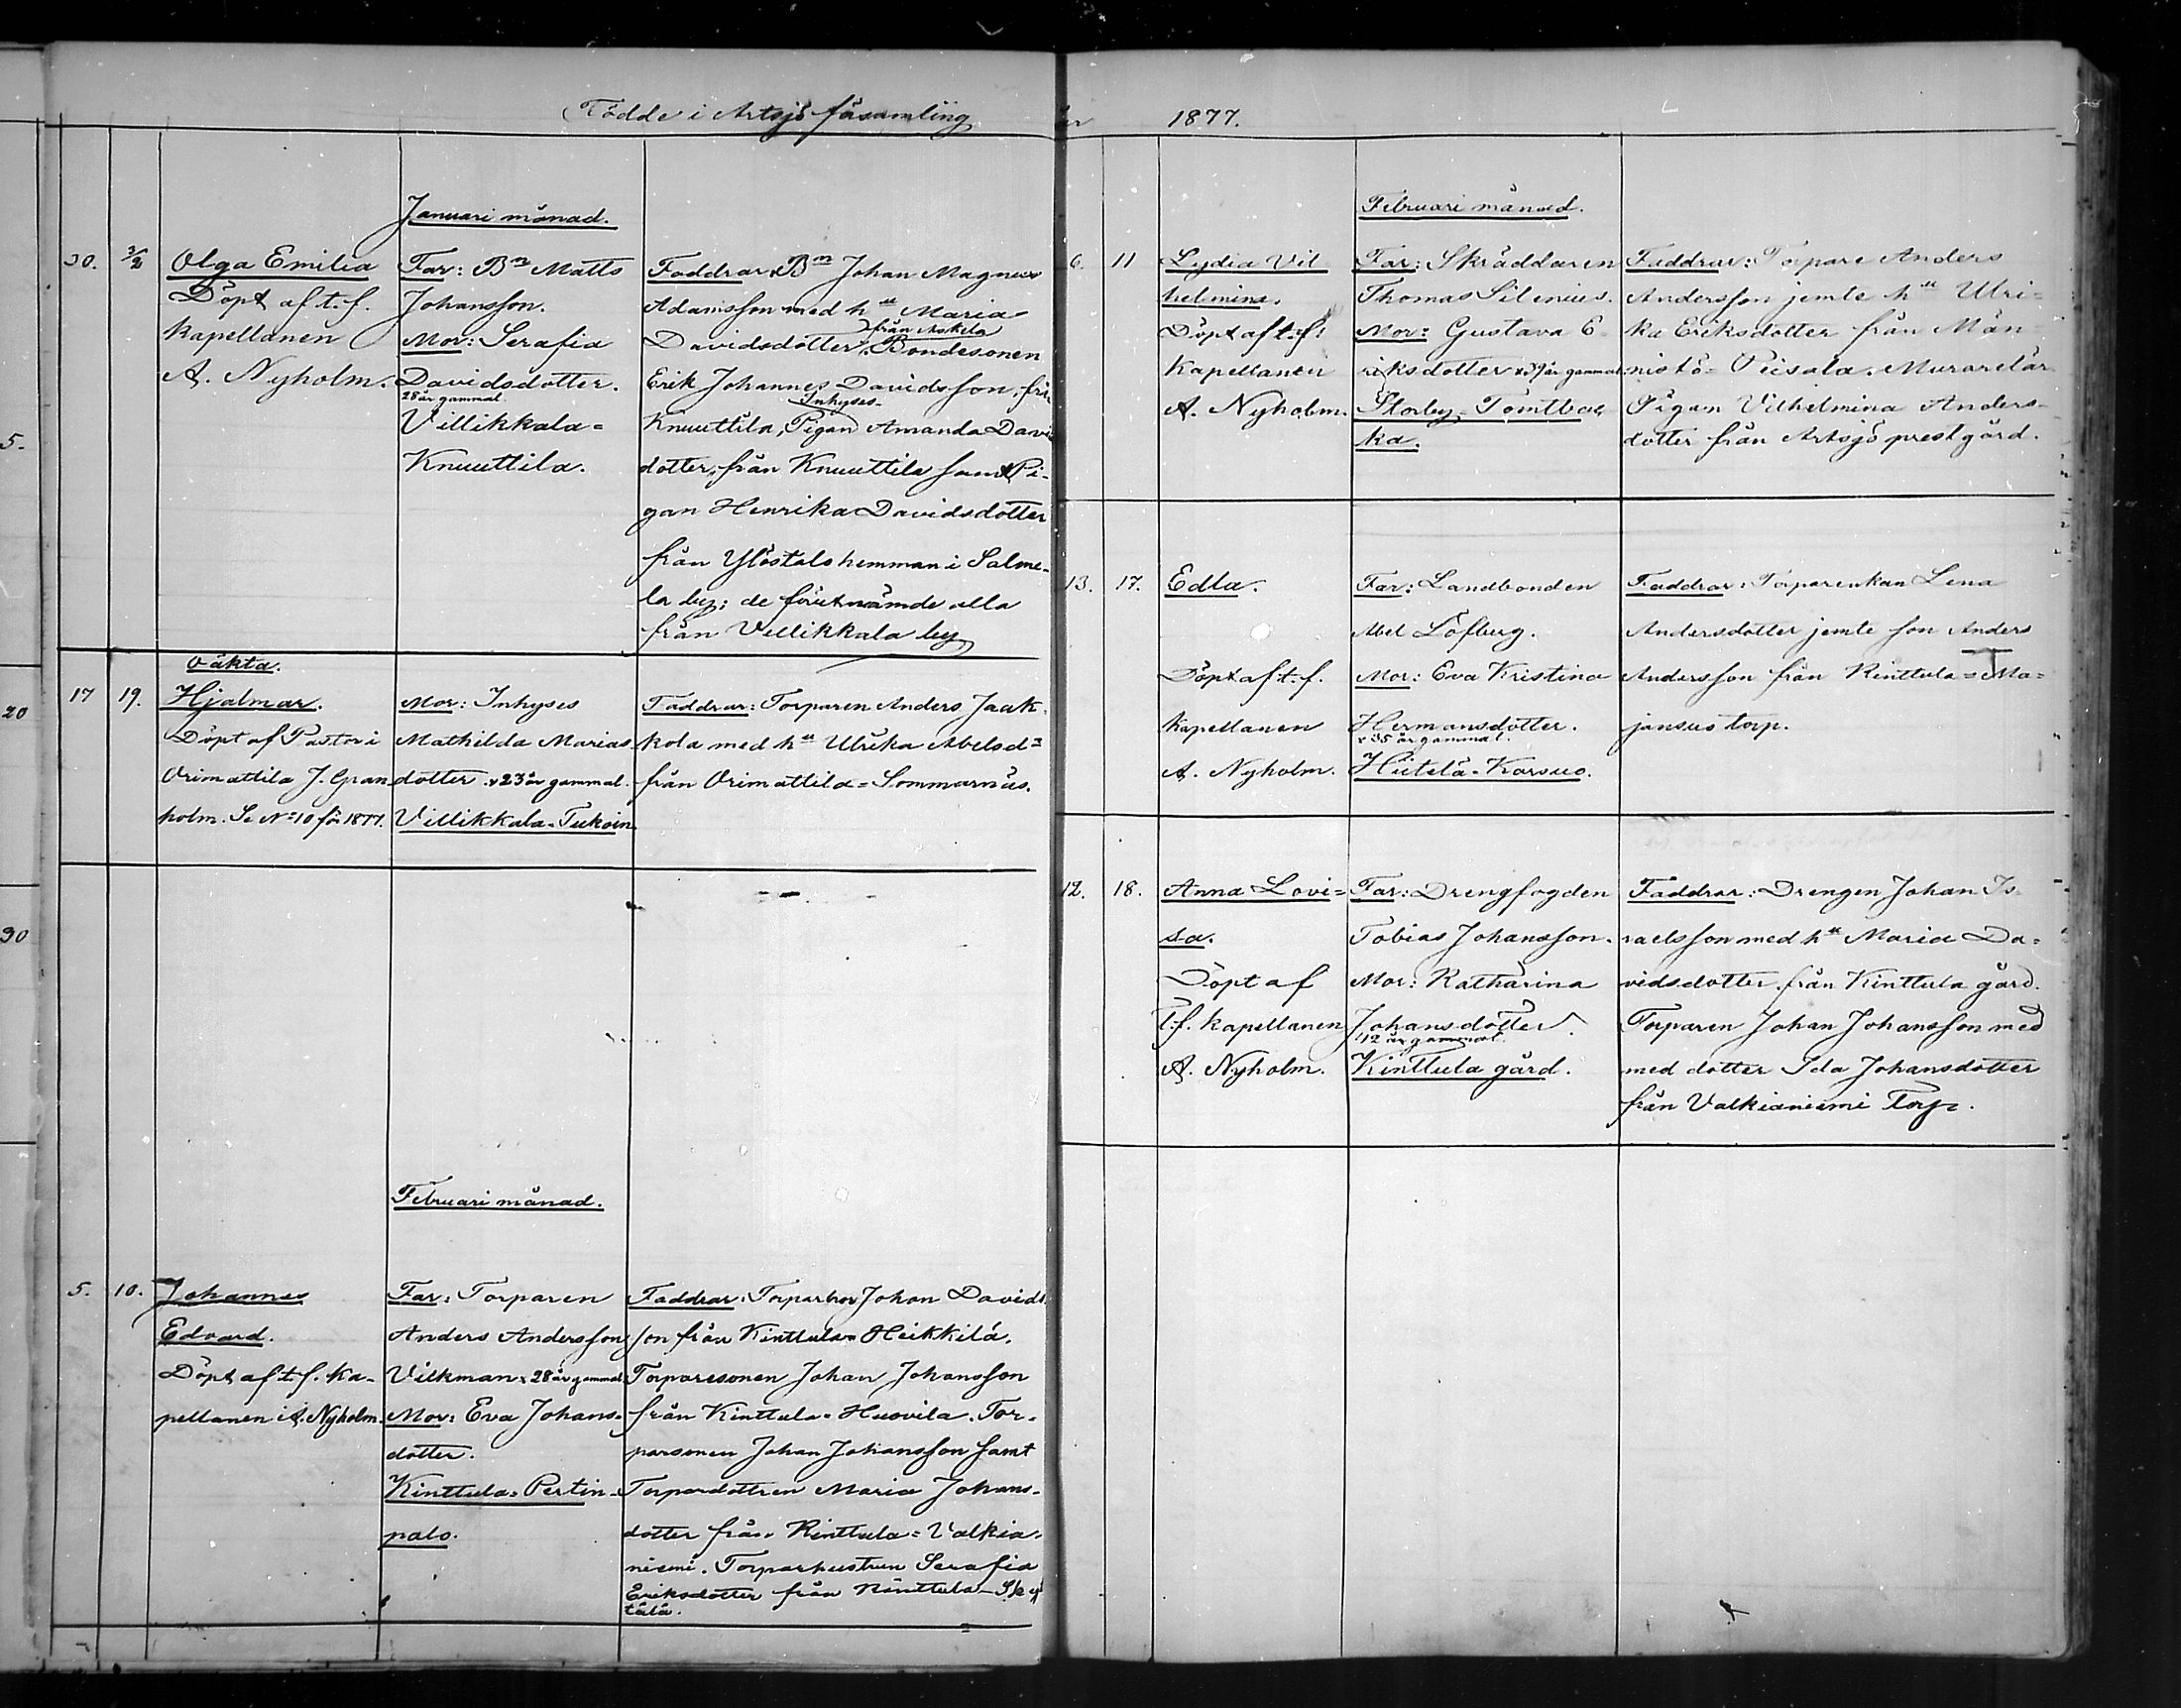 Födde i Artsjö församling
år 1877.
5.
20
30
Januari månad.
30. 3/2 Olga Emilia
Döpt af t. f.
Kapellanen
A. Nyholm.
Far: Bn Matts
Johansson.
Mor: Serafia
Davidsdotter.
28 år gammal
Villikkala=
Knuuttila.
Faddrar: Bn Johan Magnus
Adamsson med hu Maria
från Askela
Davidsdotter, Bondesonen
Erik Johannes Davidsson, från
Inhyses-
Knuuttila, Pigan Amanda Davids
dotter, från Knuuttila samt Pi-
gan Henrika Davidsdotter
från Ylöstalo hemman i Salme-
la by; de förutnämde alla
från Villikkala by
Oäkta.
17 19. Hjalmar.
Döpt af Pastor i
Orimattila J. Gran-
holm. Se No 10 för 1877.
Mor: Inhyses
Mathilda Marias
dotter. 23 år gammal.
Villikkala-Tukoin
Faddrar: Torparen Anders Jaak-
kola med hu Ulrika Abelsd=
från Orimattila=Sommarnäs.
Februari månad.
5. 10. Johannes
Edvard.
Döpt af t. f. Ka-
pellanen A. Nyholm.
Far: Torparen
Anders Andersson
Vilkman 28 år gammal
Mor: Eva Johans-
dotter.
Kinttula=Pertin-
palo.
Faddrar: Johan Davids
son från Kinttula=Heikkilä,
Torparesonen Johan Johansson
från Kinttula=Huovila. Tor-
parsonen Johan Johansson samt
Torpardottren Maria Johans-
dotter från Kinttula=Valkia-
niemi. Torparhustrun Serafia
Eriksdotter från Kinttula-
tälä.
Februari månad.
6. 11 Lydia Vil
helmina.
Döpt af t. f.
Kapellanen
A. Nyholm.
Far: Skräddaren
Thomas Silenius.
Mor: Gustava E
riksdotter 39 år gammal
Storby=Tomtbac
ka.
Faddrar: Torpare Anders
Andersson jemte hu Ulri=
ka Eriksdotter från Män
nistö=Piisala.
Pigan Vilhelmina Anders-
dotter från Artsjö prestgård.
13. 17. Edla.
Döpt af t. f.
Kapellanen
A. Nyholm.
Far: Landbonden
Abel Löfberg.
Mor: Eva Kristina
Hermansdotter.
35 år gammal.
Hiitelä-Korsuo.
Faddrar: Torparenkan Lena
Andersdotter jemte son Anders
Andersson från Kinttula=Ma=
jansuo torp.
12. 18. Anna Lovi=
sa.
Döpt af
T. f. Kapellanen
A. Nyholm.
Far: Drengfogden
Tobias Johansson.
Mor: Katharina
Johansdotter.
år gammal.
Kinttula gård.
Faddrar: Drengen Johan Is-
raelsson med hu Maria Da=
vidsdotter, från Kinttula gård.
Torparen Johan Johansson med
med dotter Ida Johansdotter
från Valkianiemi Torp.